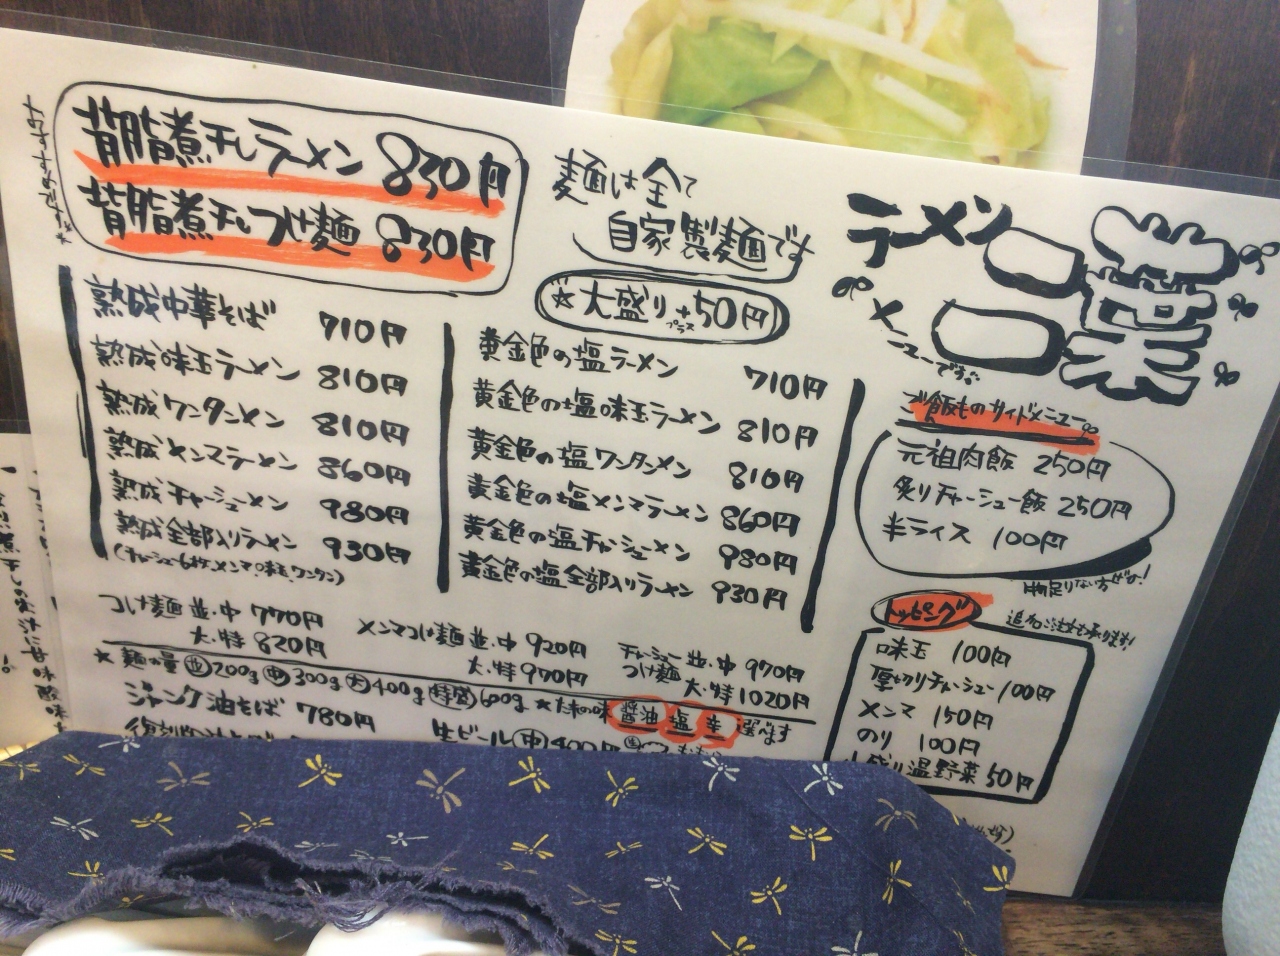 背脂煮干しラーメン 830円
背脂煮干しつけ麺 830円
麺は全て
自家製麺です
☆大盛り+50円
プラス
ラーメン
メニューです。
熟成中華そば 710円
熟成味玉ラーメン 810円
熟成ワンタンメン 810円
熟成メンマラーメン 860円
熟成チャーシューメン 980円
熟成全部入りラーメン 930円
黄金色の塩ラーメン 710円
黄金色の塩味玉ラーメン 810円
黄金色の塩ワンタンメン 810円
黄金色の塩メンマラーメン 860円
黄金色の塩チャーシューメン 980円
黄金色の塩全部入りラーメン 930円
ご飯ものサイドメニュー
元祖肉飯 250円
炙りチャーシュー飯 250円
半ライス 100円
物足りない方ぜひ!
トッピング
追加ご注文も承ります!
味玉 100円
厚切りチャーシュー 100円
メンマ 150円
のり 100円
大盛り温野菜 50円
つけ麺 並・中 770円
大・特 820円
メンマつけ麺 並・中 920円
大・特 970円
チャーシューつけ麺 並・中 970円
大・特 1020円
★麺の量 並200g 中300g 大400g 特盛600g ★たれの味 醤油 塩 辛 選べます
ジャンク油そば 780円
生ビール 中 400円